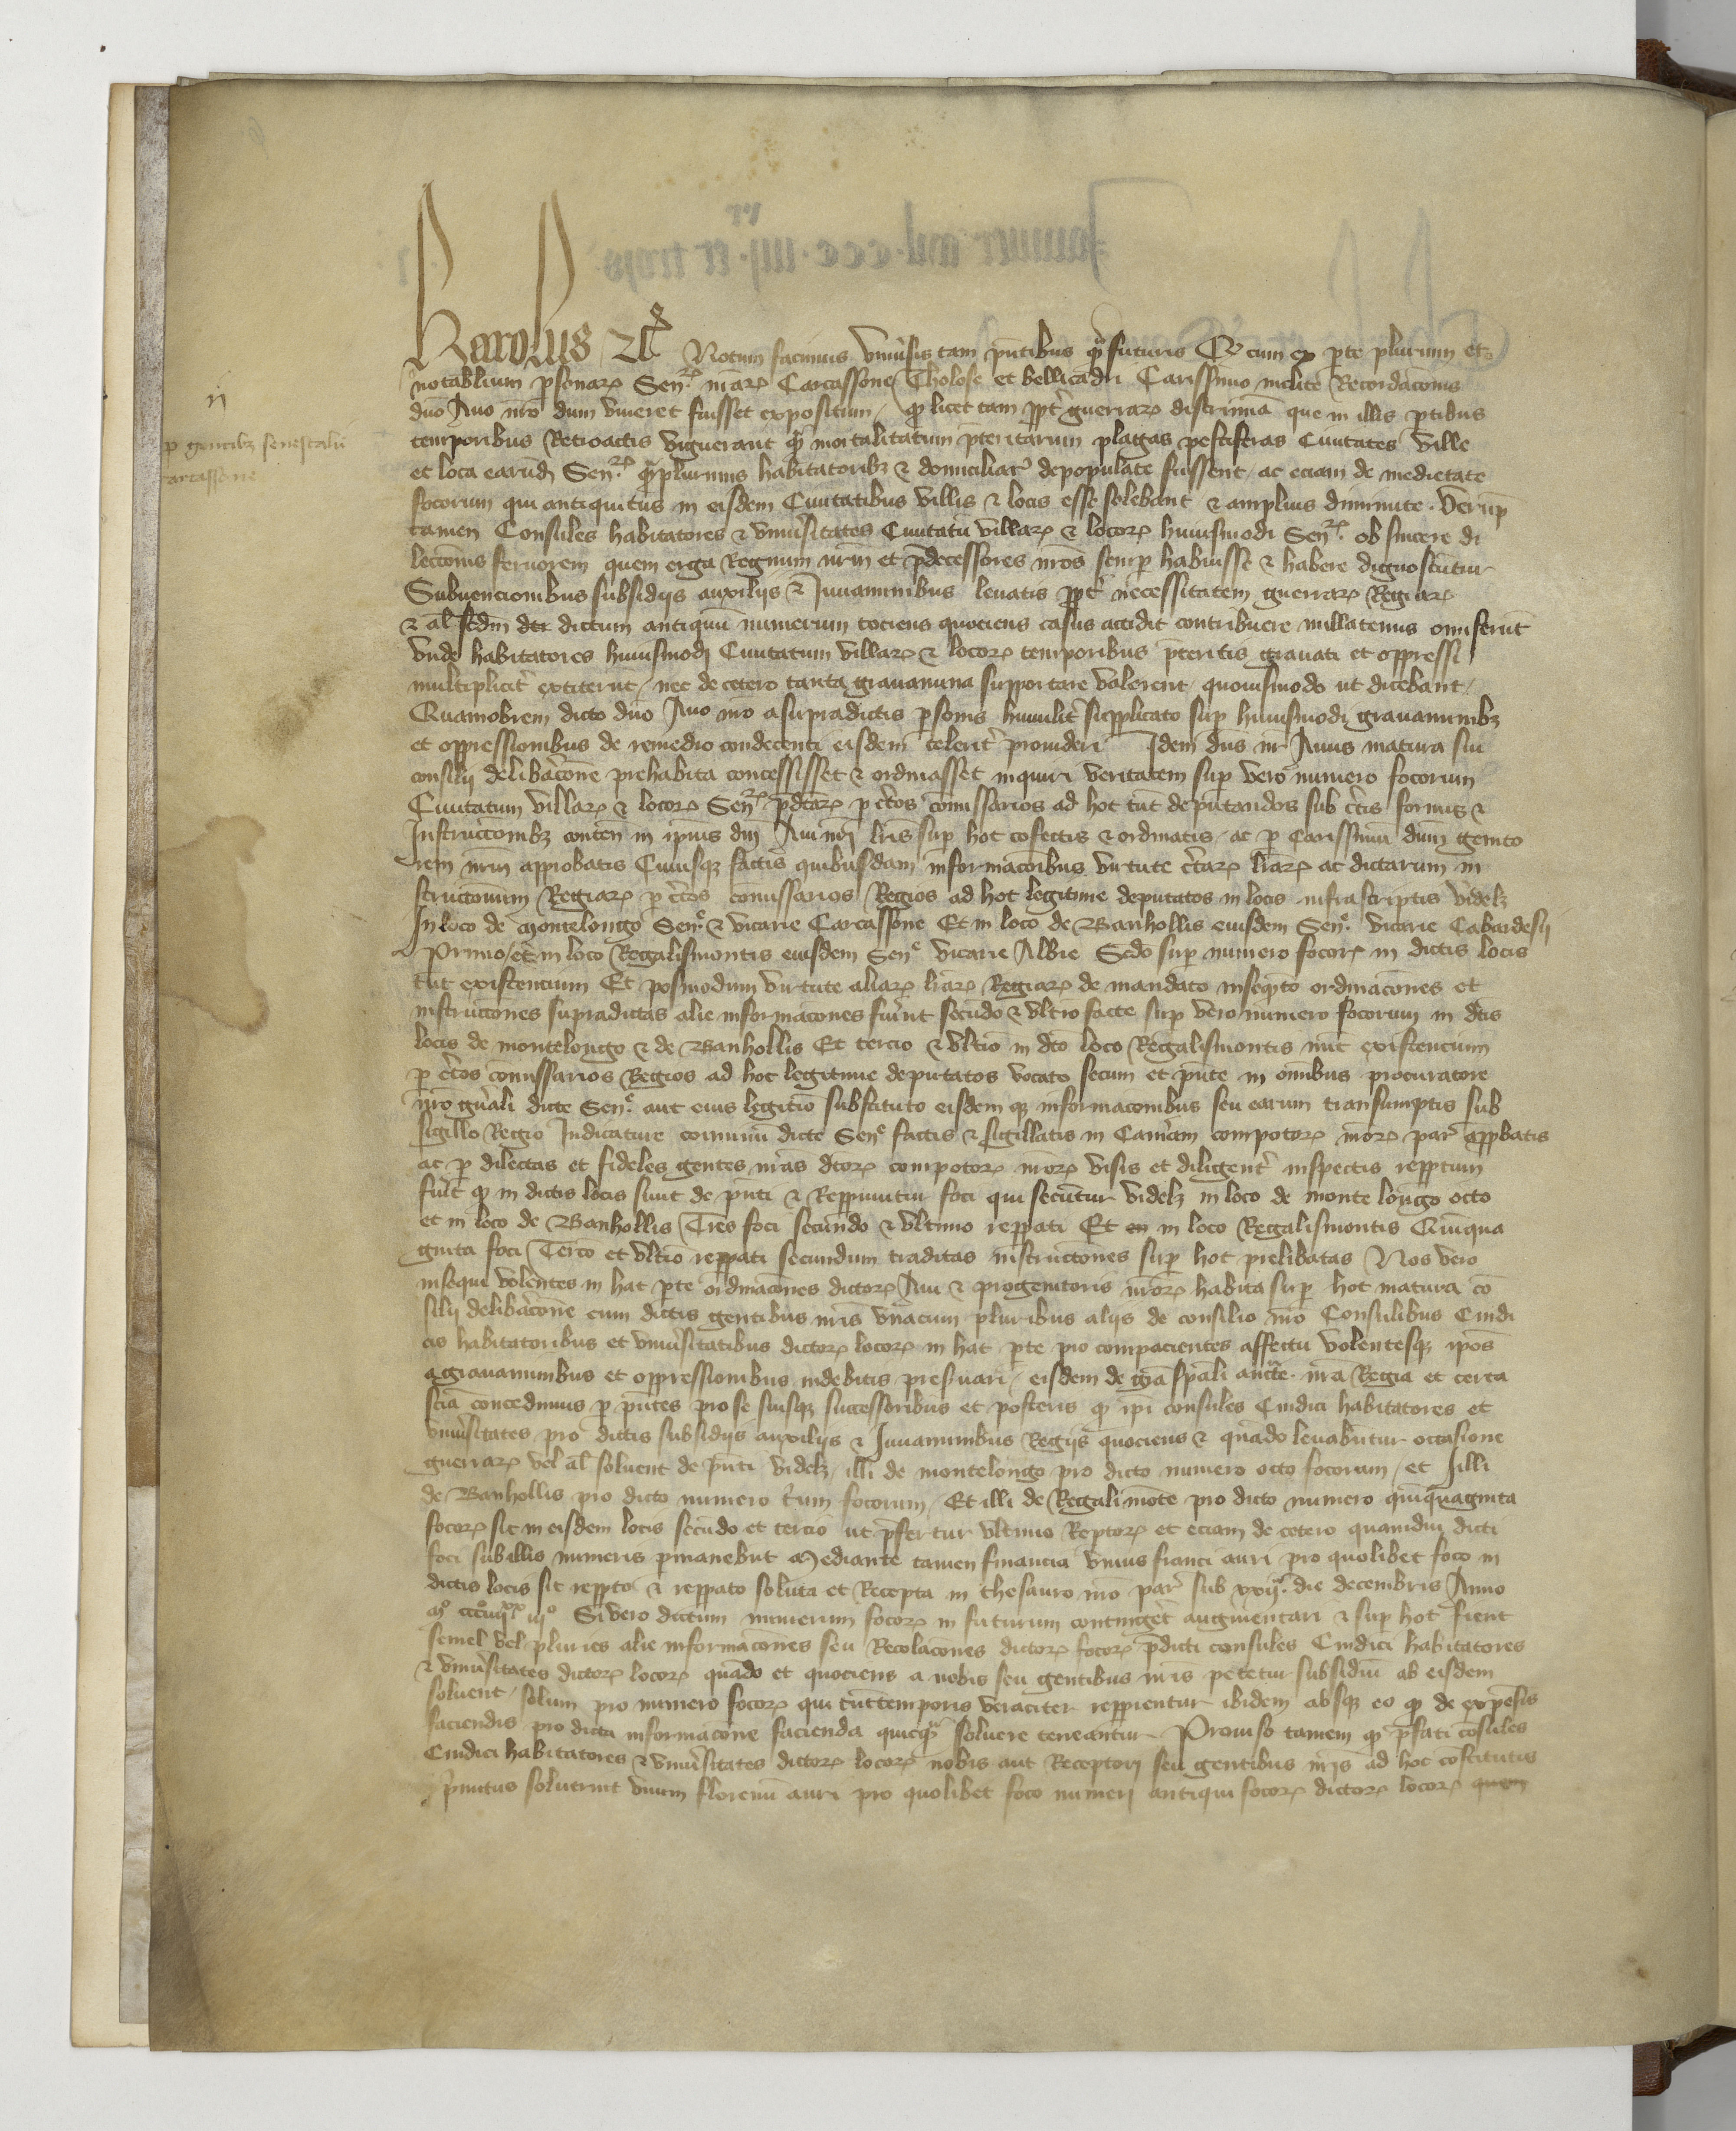 ij
p gentibz senescalie
carcassone
Karolus ⁊cͣ Notum facimus vniu͛sis tam pn̄tibus qͣ futuris Qͥ cum ex parte plurium et
notabilium p̱sonarꝝ Senͣꝝ nr̄arꝝ Carcassone Tholose et bellicadri Carissimo inclite Recordac̄onis
dn̄o Auo nr̄o dum viueret fuisset expositum / ꝙ licet tam ꝓpt͛ guerrarꝝ discrimīa que in illis p̱tibus
temporibus Retroactis viguerant qͣ mortalitatum p̄teritarum plagas pestiferas Ciuitates ville
et loca earūdē Senͣꝝ qͣplurimis habitatoribꝫ ⁊ domiciliar͛ depopulate fuissent / ac eciam de medietate
focorum qui antiquitus in eisdem Ciuitatibus villis ⁊ locis esse solebant ⁊ amplius diminute . Verūp
tamen Consules habitatores ⁊ vniu͛sitates Ciuitatū villarꝝ ⁊ locorꝝ huiusmodi Senͣꝝ . ob sincere di
lecc̄onis feruorem quem erga Regnum nr̄m et p̄decessores nr̄os semp̱ habuisse ⁊ habere dignoscūtur
Subuencionibus subsidijs auxilijs ⁊ Iuuaminibus leuatis ꝓpt͛ necessitatem guerrarꝝ Regiarꝝ
⁊ al̄ scdm̄ dictum antiquū numerum tociens quociens casus accidit contribuere nullatenus omiserūt
vnde habitatores huiusmodi Ciuitatum villarꝝ ⁊ locorꝝ temporibus p̄teritis grauati et oppressi
multiplicit͛ extiterūt / nec de cetero tanta grauamina supportare valerent quouismodo ut dicebant /
Quamobrem dicto dn̄o Auo nr̄o a supradictis p̱sonis humilit͛ supplicato sup̱ huiusmodi grauaminibꝫ
et oppressionibus de remedio condecenti eisdem celerit͛ prouideri Idem dn̄s nr̄ Auus matura sui
consilij delibac̄one prehabita concessisset ⁊ ordinasset inquiri veritatem sup̱ vero numero focorum
Ciuitatum villarꝝ ⁊ locorꝝ Senͣꝝ p̄dc̄arꝝ p̱ cr̄tos comissarios ad hoc tūc deputandos sub cr̄tis formis ⁊
Instrucc̄onibꝫ conten̄ in ip̄ius dn̄i Aui nr̄i lr̄is sup̱ hoc cōfectis ⁊ ordinatis / ac p̱ Carissimū dn̄m genito
rem nr̄m approbatis Cumusqꝫ factis quibusdam informac̄onibus virtute cr̄tarꝝ lr̄arꝝ ac dictarum in
strucc̄onum Regiarꝝ p̱ cr̄tos comissarios Regios ad hoc legitime deputatos in locis infrascriptis videlꝫ
In loco de Montelongo Senͤ ⁊ vicarie Carcassone Et in loco de Banhollis eiusdem Senͤ . vicarie Cabardesij
Primo / et in loco Regalismontis eiusdem Senͤ vicarie Albie Scd̄o sup̱ numero focorꝝ in dictis locis
tūc existencium Et posmodum virtute aliarꝝ lr̄arꝝ Regiarꝝ de mandato insequēto ordinac̄ones et
instrucc̄ones supradictas alie informac̄ones fuer̄nt secūdo ⁊ vltīo facte sup̱ vero numero focorum in dc̄is
locis de montelongo ⁊ de Banhollis Et tercio ⁊ vltīo in dc̄o loco Regalismontis nūc existencium
p̱ cr̄tos comissarios Regios ad hoc legitime deputatos vocato secum et pn̄te in omnibus procuratore
nr̄o gn̄ali dicte Senͤ . aut eius legitīo substituto eisdem qꝫ informac̄onibus seu earum transumptis sub
sigillo Regio Iudicature cōmunū dicte Senͤ factis ⁊ sigillatis in Cam̄am compotorꝝ nr̄orꝝ par͛ apportatis
ac p̱ dilectas et fideles gentes nr̄as dc̄orꝝ compotorꝝ nr̄orꝝ visis et diligent͛ inspectis repp̱tum
fuit ꝙ in dictis locis sunt de pn̄ti ⁊ Repp̱iuntur foci qui secūtur videlꝫ in loco de monte longo octo
et in loco de Banhollis Tres foci secundo ⁊ vltimo repp̱ati Et in loco Regalismontis Quīqua
ginta foci Tercō et vltīo repp̱ati secundum traditas instrucc̄ones sup̱ hoc prelibatas Nos vero
insequi volentes in hac p̱te ordinac̄ones dictorꝝ Aui ⁊ progenitoris nr̄orꝝ habita sup̱ hoc matura cō
silij delibac̄one cum dictis gentibus nr̄is vnacum pluribus alijs de consilio nr̄o Consulibus Cindi
cis habitatoribus et vniu͛sitatibus dictorꝝ locorꝝ in hac p̱te pio compacientes affectu volentesqꝫ ip̄os
a grauaminibus et oppressionibus indebitis preseruari / eisdem de gr̄a spāli auctͭe nr̄a Regia et certa
sciā concedimus p̱ pn̄tes pro se suisqꝫ successoribus et posteris ꝙ ip̄i consules Cindici habitatores et
vniu͛sitates pro dictis subsidijs auxilijs ⁊ Iuuaminibus Regijs quociens ⁊ quādo leuabūtur occasione
guerrarꝝ vel al̄ soluent de pn̄ti videlꝫ / illi de montelongo pro dicto numero octo focorum / et Illi
de Banhollis pro dicto numero t͛um focorum / Et illi de Regalimōte pro dicto numero quīquaginta
focorꝝ sic in eisdem locis secūdo et tercio ut p̄fertur vltimo Rep̱torꝝ et eciam de cetero quamdiu dicti
foci sub illis numeris p̱manebūt Mediante tamen financia vnius franci auri pro quolibet foco in
dictis locis sic repp̱to ⁊ repp̱ato soluta et Recepta in thesauro nr̄o par͛ sub xxijͣ . die decembris Anno
Mͦ cccͦ iiijͯͯ iijͦ Si vero dictum numerum focorꝝ in futurum contingeret augmentari ⁊ sup̱ hoc fient
semel vel pluries alie informac̄ones seu Recolac̄ones dictorꝝ focorꝝ p̄dicti consules Cindici habitatores
⁊ vniu͛sitates dictorꝝ locorꝝ quādo et quociens a nobis seu gentibus nr̄is petetur subsidiū ab eisdem
soluent / solum pro numero focorꝝ qui tūctemporis veraciter repp̱ientur ibidem absqꝫ eo ꝙ de expēsis
faciendis pro dicta informac̄one facienda quicqͣ soluere teneantur Prouiso tamem ꝙ p̄fati cōsules
Cindici habitatores ⁊ vniu͛sitates dictorꝝ locorꝝ nobis aut Receptori seu gentibus nr̄is ad hoc cōstitutis
p̄mitus soluerint vnum florenū auri pro quolibet foco numeri antiqui focorꝝ dictorꝝ locorꝝ quem